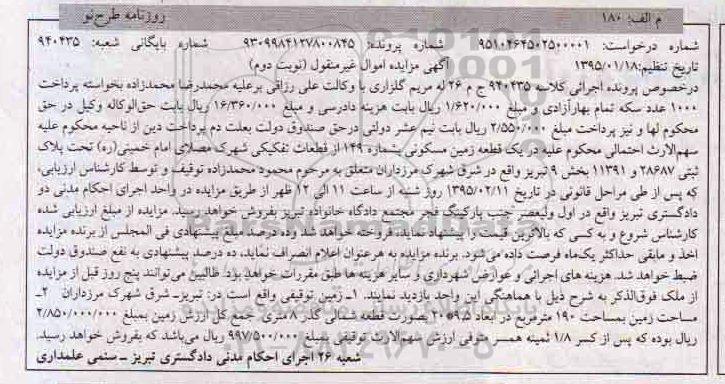 م الف: ۱۸۰ روزنامه طرح‌نو
شماره درخواست: ۹۵۱۰۴۶۴۵۰۲۵۰۰۰۰۱ شماره پرونده: ۹۳۰۹۹۸۴۱۲۷۸۰۰۸۴۵ شماره بایگانی شعبه: ۹۴۰۴۳۵
تاریخ تنظیم: ۱۳۹۵/۰۱/۱۸ آگهی مزایده اموال غیرمنقول (نوبت دوم)
درخصوص پرونده اجرائی کلاسه ۹۴۰۴۳۵ ج م ۲۶ له مریم گلزاری با وکالت علی رزاقی برعلیه محمدرضا محمدزاده بخواسته پرداخت
۱۰۰۰ عدد سکه تمام بهارآزادی و مبلغ ۱/۶۲۰/۰۰۰ ریال بابت هزینه دادرسی و مبلغ ۱۶/۳۶۰/۰۰۰ ریال بابت حق‌الوکاله وکیل در حق
محکوم لها و نیز پرداخت مبلغ ۲/۵۵۰/۰۰۰ ریال بابت نیم عشر دولتی درحق صندوق دولت بعلت دم پرداخت دین از ناحیه محکوم علیه
سهم‌الارث احتمالی محکوم علیه در یک قطعه زمین مسکونی بشماره ۱۴۹ از قطعات تفکیکی شهرک مصلای امام خمینی(ره) تحت پلاک
ثبتی ۲۸۶۸۷ و ۱۱۳۹۱ بخش ۹ تبریز واقع در شرق شهرک مرزداران متعلق به مرحوم محمود محمدزاده توقیف و توسط کارشناس ارزیابی،
که پس از طی مراحل قانونی در تاریخ ۱۳۹۵/۰۲/۱۱ روز شنبه از ساعت ۱۱ الی ۱۲ ظهر از طریق مزایده در واحد اجرای احکام مدنی دو
دادگستری تبریز واقع در اول ولیعصر جنب پارکینگ فجر مجتمع دادگاه خانواده تبریز بفروش خواهد رسید. مزایده از مبلغ ارزیابی شده
کارشناس شروع و به کسی که بالاترین قیمت را پیشنهاد نماید، فروخته خواهد شد وده درصد مبلغ پیشنهادی فی المجلس از برنده مزایده
اخذ و مابقی حداکثر یک‌ماه فرصت داده می‌شود. برنده مزایده به هرعنوان اعلام انصراف نماید، ده درصد پیشنهادی به نفع صندوق دولت
ضبط خواهد شد. هزینه های اجرائی و عوارض شهرداری و سایر هزینه ها طبق مقررات خواهد بود. طالبین می‌توانند پنج روز قبل از مزایده
از ملک فوق‌الذکر به شرح ذیل با هماهنگی این واحد بازدید نمایند. ۱ـ زمین توقیفی واقع است در: تبریزـ شرق شهرک مرزداران ۲ـ
مساحت زمین بمساحت ۱۹۰ مترمربع در ابعاد ۹/۵*۲۰ بصورت قطعه شمالی گذر ۸متری جمع کل ارزش زمین بمبلغ ۲/۸۵۰/۰۰۰/۰۰۰
ریال بوده که پس از کسر ۱/۸ ثمینه همسر متوفی ارزش سهم‌الارث توقیفی بمبلغ ۹۹۷/۵۰۰/۰۰۰ ریال می‌باشد که بفروش خواهد رسید.
شعبه ۲۶ اجرای احکام مدنی دادگستری تبریز ـ سنمی علمداری